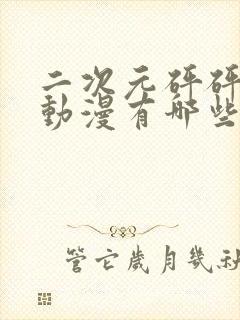 二次元砰砰
動漫有哪些
管它歲月幾